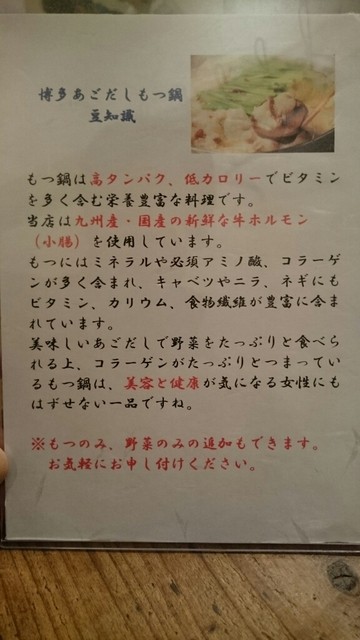 博多あごだしもつ鍋
豆知識
もつ鍋は高タンパク、低カロリーでビタミン
を多く含む栄養豊富な料理です。
当店は九州産・国産の新鮮な牛ホルモン
（小腸）を使用しています。
もつにはミネラルや必須アミノ酸、コラーゲ
ンが多く含まれ、キャベツやニラ、ネギにも
ビタミン、カリウム、食物繊維が豊富に含ま
れています。
美味しいあごだしで野菜をたっぷりと食べら
れる上、コラーゲンがたっぷりとつまってい
るもつ鍋は、美容と健康が気になる女性にも
はずせない一品ですね。
※もつのみ、野菜のみの追加もできます。
お気軽にお申し付けください。